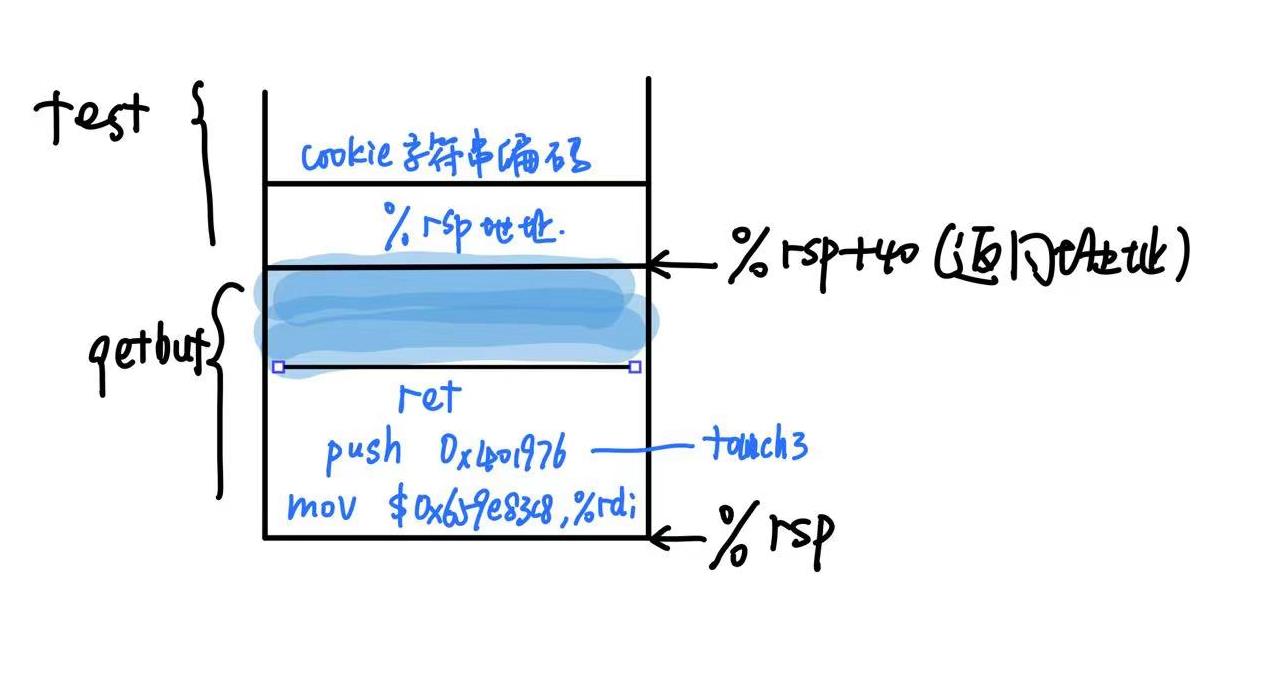 test
cookie字符串编码
%rsp地址.
%rsp+40(返回地址)
getbuf
ret
push 0x401976 touch3
mov $0x659e83c8,%rdi
%rsp